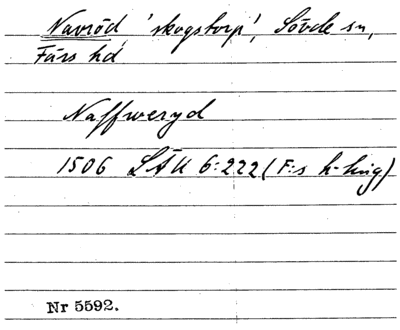 Navröd 'skogstorp', Sövde sn,
Färs hd
Naffweryd
1506 LÄU 6:222 (F:s h-ting)
Nr 5592.